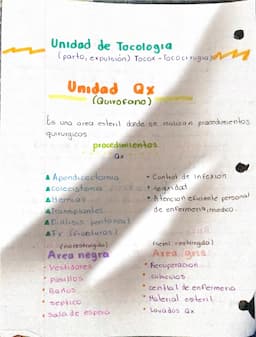 Unidad de Tocología
(parto, expulsión) Tocox - Tococirugía
Unidad Qx
(Quirofano)
Es una area esteril donde se realizan procedimientos
quirurgicos
procedimientos
Qx
Apendicectomia
Hernias
Transplantes
Dialisis peritoneal
Fx (fracturas)
• Control de infexión
• seguridad
• Atención eficiente personal
de enfermeria, medico.
(no restringida)
Area negra
• Vestidores
• pasillos
• Baños
• septico
• sala de espera
(semi restringida)
Area gris
• Recuperacion
• central de enfermeria
• Material esteril
• Lavados Qx